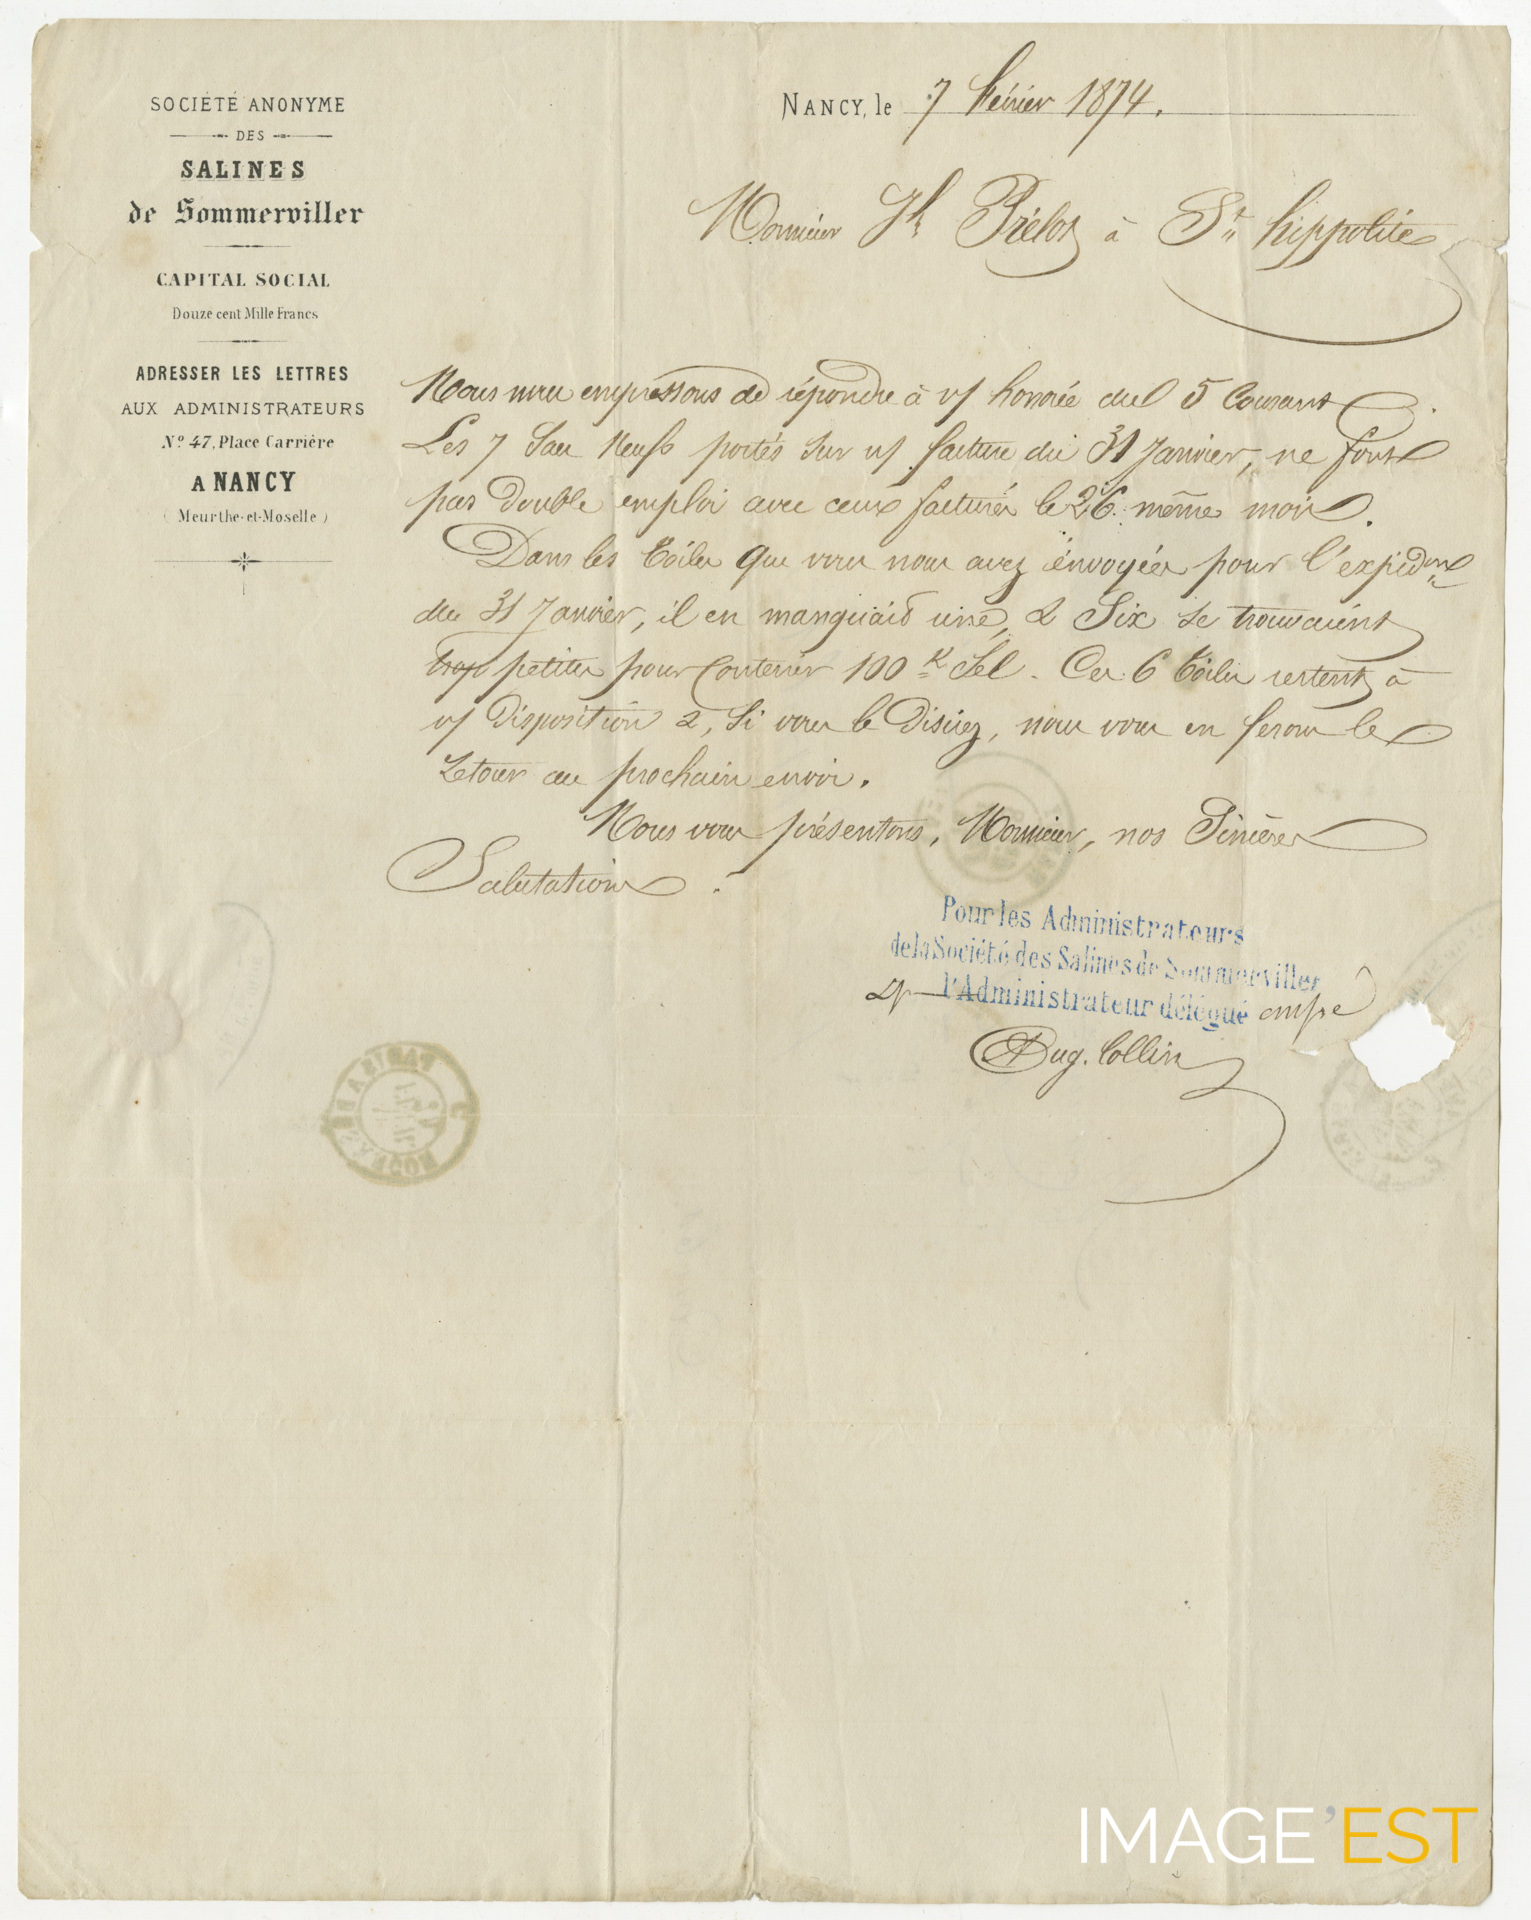 SOCIÉTÉ ANONYME
DES
SALINES
de Sommerviller
CAPITAL SOCIAL
Douze cent Mille Francs
ADRESSER LES LETTRES
AUX ADMINISTRATEURS
Nº 47, Place Carrière
A NANCY
( Meurthe-et-Moselle )
NANCY, le 7 février 1874.
Monsieur Jh Prélot à St hippolite
Nous nous empressons de répondre à v/ honorée du 5 Courant.
Les 7 Sacs Neufs portés sur n/ facture du 31 Janvier, ne font
pas double emploi avec ceux facturés le 26 même mois.
Dans les toiles que vous nous avez envoyées pour l'expédon
du 31 Janvier, il en manquait une, & Six se trouvaient
trop petites pour Contenir 100 K Sel. Ces 6 toiles restent à
v/ disposition &, si vous le désirez, nous vous en ferons le
retour au prochain envoi.
Nous vous présentons, Monsieur, nos Sincères
Salutations.
Pour les Administrateurs
de la Société des Salines de Sommerviller
l'Administrateur délégué
Aug. Collin
BESANÇON
IMAGE'EST